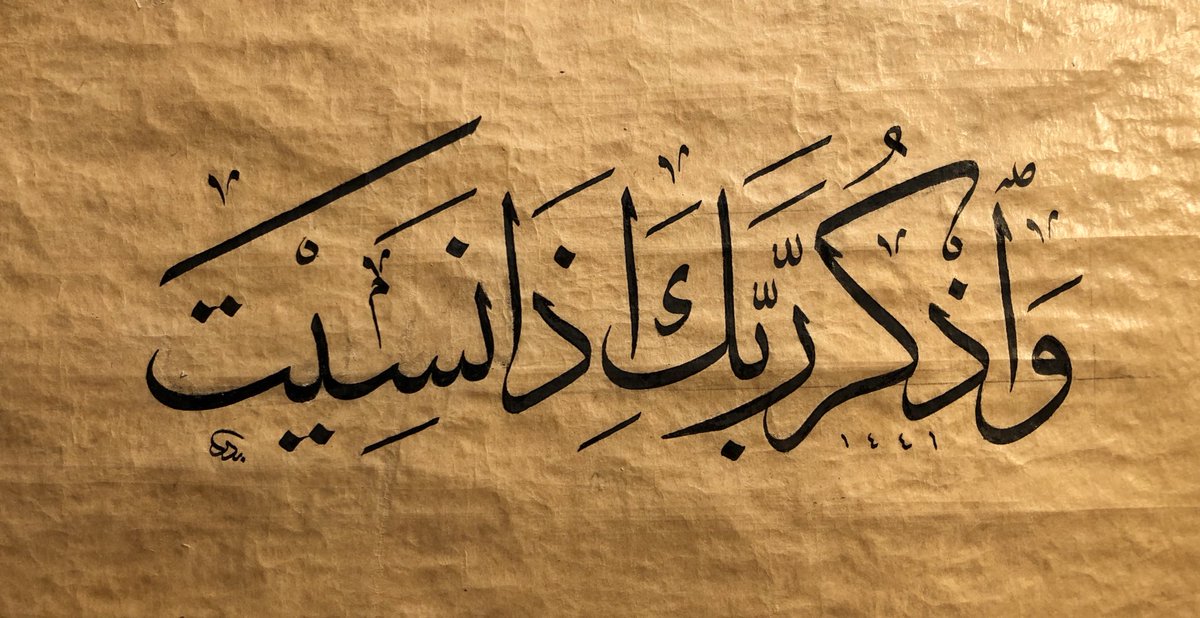 وَٱذْكُر رَّبَّكَ اِذَا نَسِيْتَ
١٤٤١